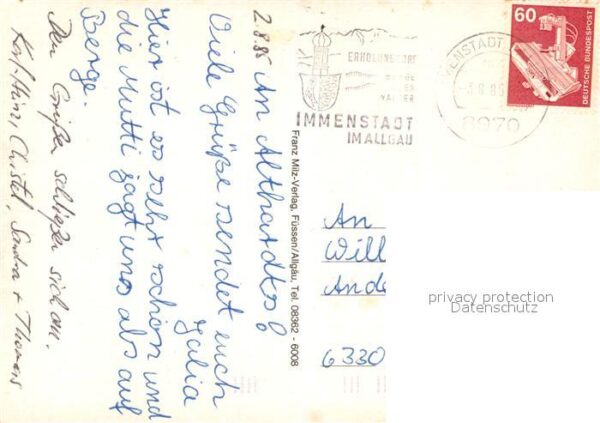 2.8.85
An Althardts!
Viele Grüße sendet euch
Julia
Hier ist es sehr schön und
die Mutti jagt uns ab auf
Berge.
Den Grüßen schließen sich an.
Karl-Heinz, Christel, Sandra + Thomas
Franz Milz-Verlag, Füssen/Allgäu, Tel. 08362 - 6008
ERHOLUNGSORT
BERGE
WASSER
IMMENSTADT
IM ALLGÄU
IMMENSTADT
-3.8.85
8970
60
DEUTSCHE BUNDESPOST
An
Will
Ande
6330
privacy protection
Datenschutz